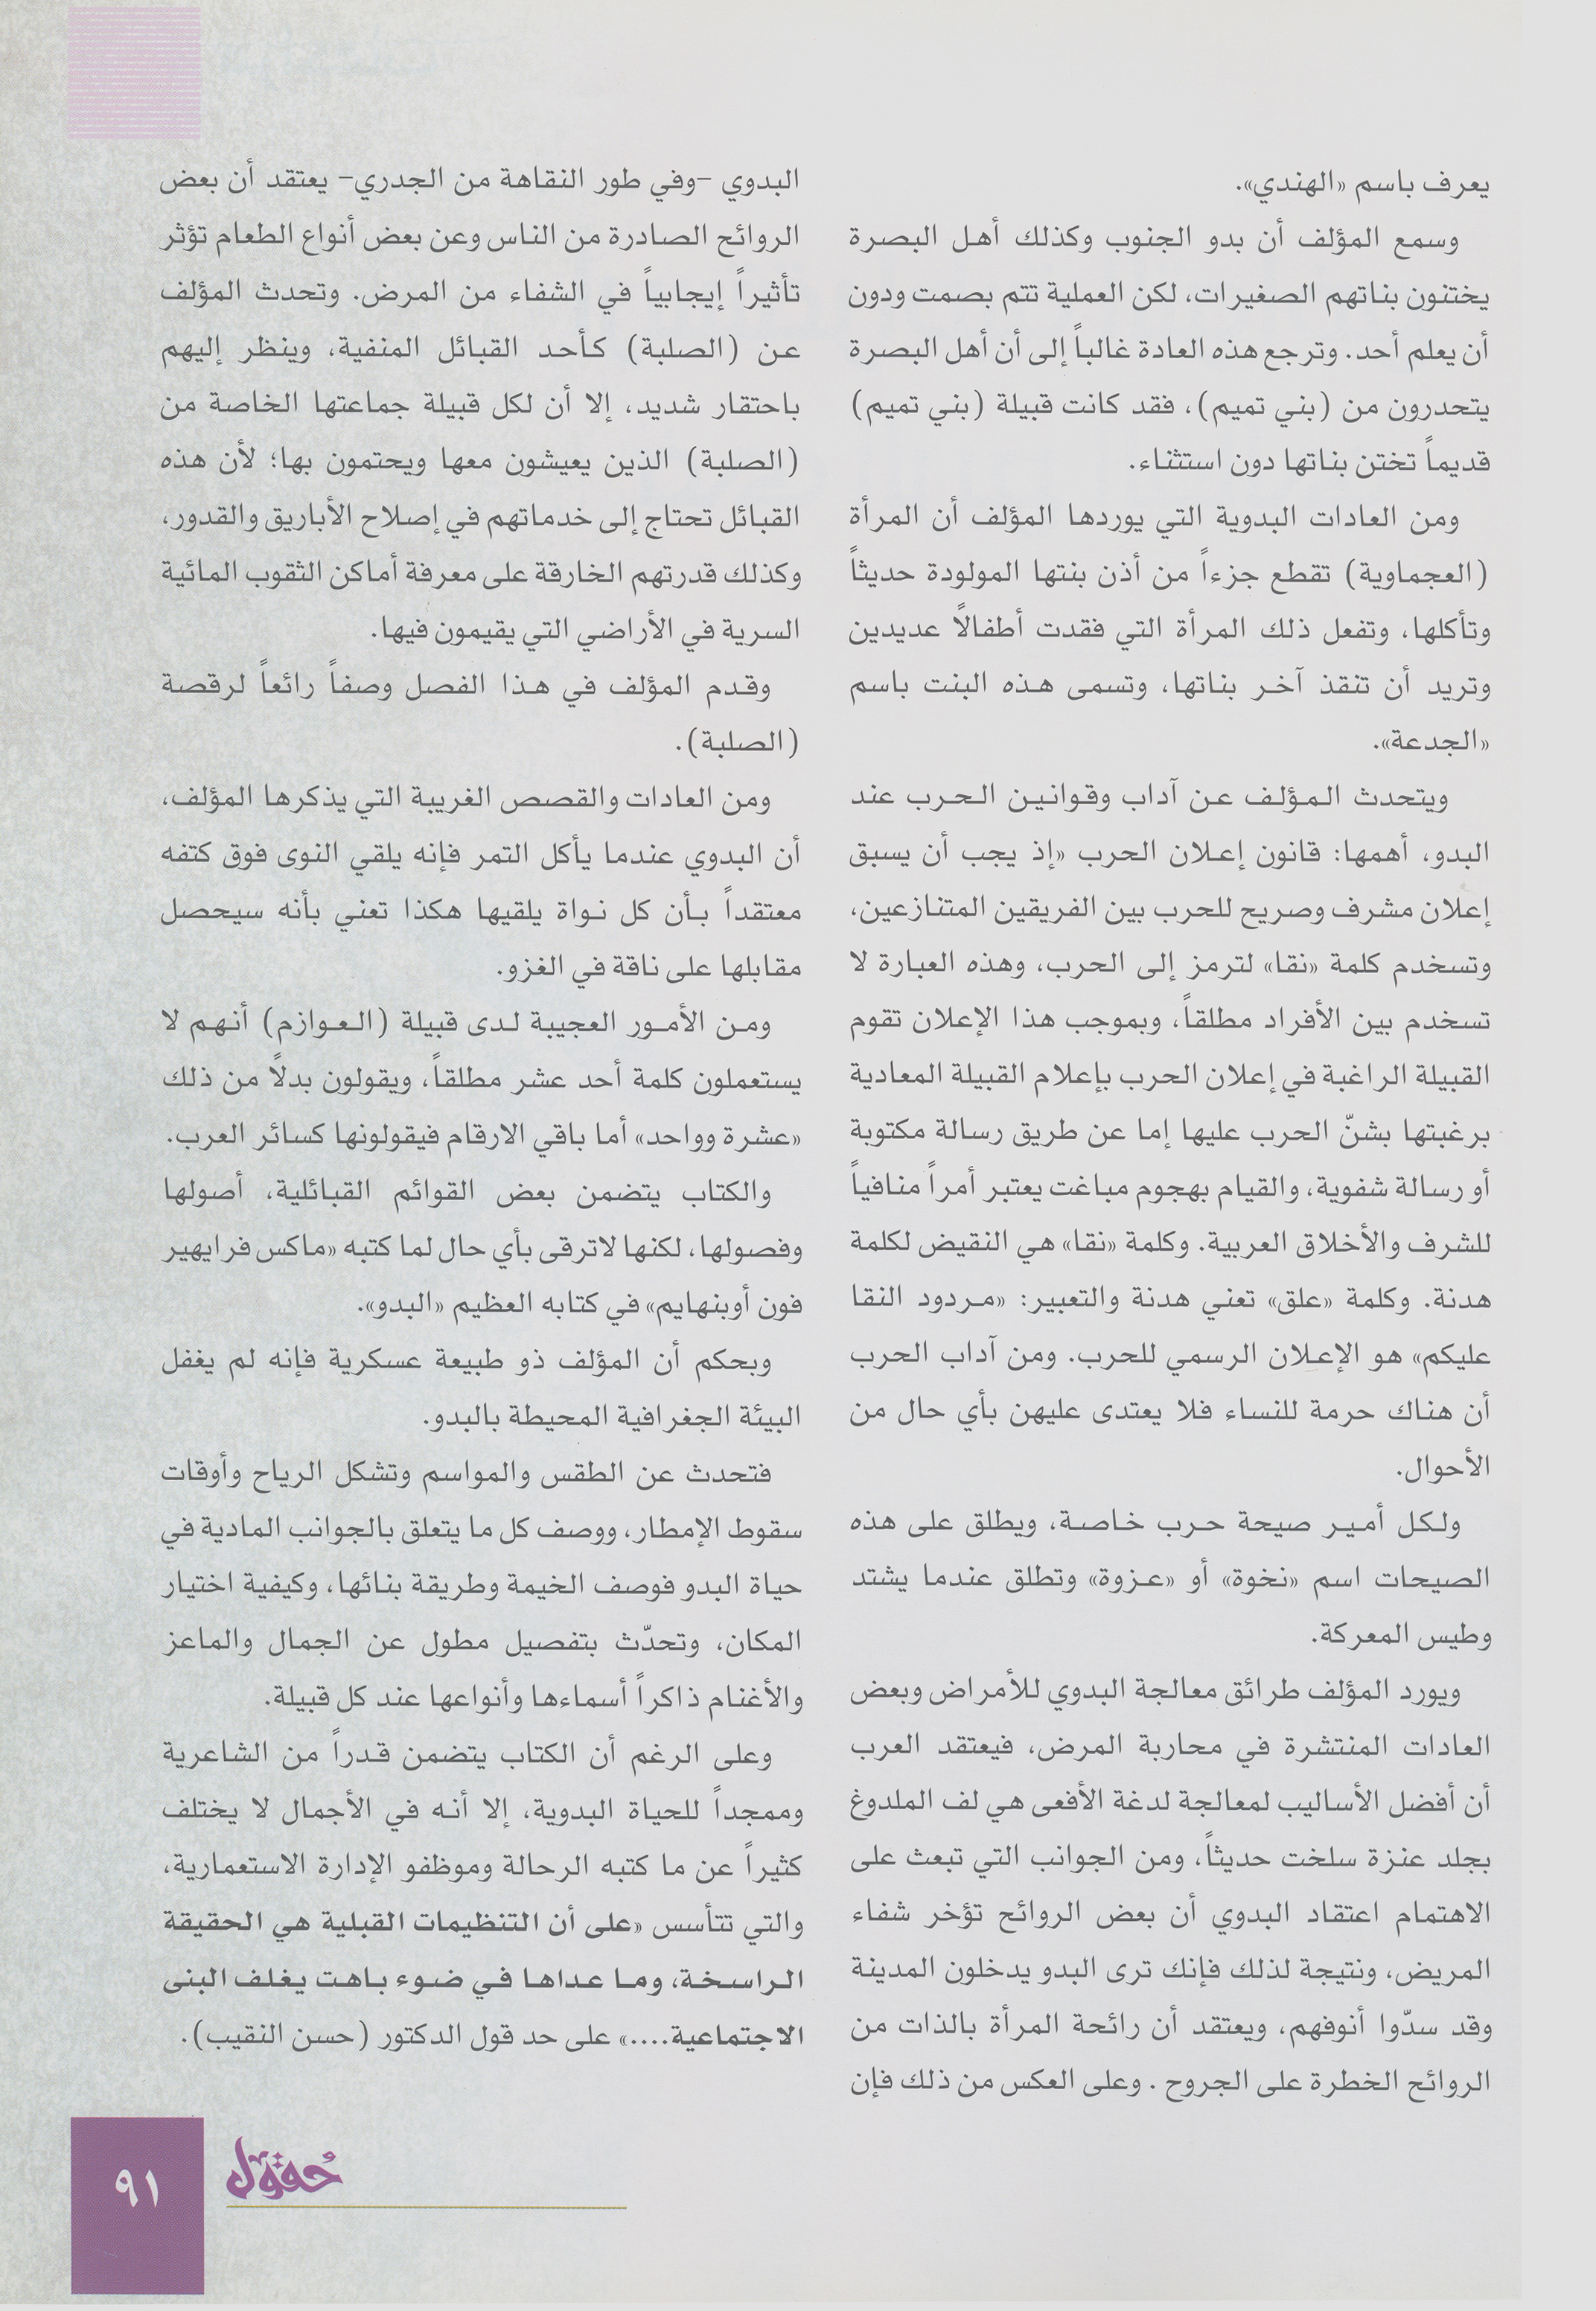 يعرف باسم «الهندي».
وسمع المؤلف أن بدو الجنوب وكذلك أهل البصرة
يختنون بناتهم الصغيرات، لكن العملية تتم بصمت ودون
أن يعلم أحد. وترجع هذه العادة غالباً إلى أن أهل البصرة
يتحدرون من (بني تميم)، فقد كانت قبيلة (بني تميم)
قديماً تختن بناتها دون استثناء.
ومن العادات البدوية التي يوردها المؤلف أن المرأة
(العجماوية) تقطع جزءاً من أذن بنتها المولودة حديثاً
وتأكلها، وتفعل ذلك المرأة التي فقدت أطفالاً عديدين
وتريد أن تنقذ آخر بناتها، وتسمى هذه البنت باسم
«الجدعة».
ويتحدث المؤلف عن آداب وقوانين الحرب عند
البدو، أهمها: قانون إعلان الحرب «إذ يجب أن يسبق
إعلان مشرف وصريح للحرب بين الفريقين المتنازعين،
وتسخدم كلمة «نقا» لترمز إلى الحرب، وهذه العبارة لا
تسخدم بين الأفراد مطلقاً، وبموجب هذا الإعلان تقوم
القبيلة الراغبة في إعلان الحرب بإعلام القبيلة المعادية
برغبتها بشنّ الحرب عليها إما عن طريق رسالة مكتوبة
أو رسالة شفوية، والقيام بهجوم مباغت يعتبر أمراً منافياً
للشرف والأخلاق العربية. وكلمة «نقا» هي النقيض لكلمة
هدنة. وكلمة «علق» تعني هدنة والتعبير: «مردود النقا
عليكم» هو الإعلان الرسمي للحرب. ومن آداب الحرب
أن هناك حرمة للنساء فلا يعتدى عليهن بأي حال من
الأحوال.
ولكل أمير صيحة حرب خاصة، ويطلق على هذه
الصيحات اسم «نخوة» أو «عزوة» وتطلق عندما يشتد
وطيس المعركة.
ويورد المؤلف طرائق معالجة البدوي للأمراض وبعض
العادات المنتشرة في محاربة المرض، فيعتقد العرب
أن أفضل الأساليب لمعالجة لدغة الأفعى هي لف الملدوغ
بجلد عنزة سلخت حديثاً، ومن الجوانب التي تبعث على
الاهتمام اعتقاد البدوي أن بعض الروائح تؤخر شفاء
المريض، ونتيجة لذلك فإنك ترى البدو يدخلون المدينة
وقد سدّوا أنوفهم، ويعتقد أن رائحة المرأة بالذات من
الروائح الخطرة على الجروح . وعلى العكس من ذلك فإن
البدوي –وفي طور النقاهة من الجدري– يعتقد أن بعض
الروائح الصادرة من الناس وعن بعض أنواع الطعام تؤثر
تأثيراً إيجابياً في الشفاء من المرض. وتحدث المؤلف
عن (الصلبة) كأحد القبائل المنفية، وينظر إليهم
باحتقار شديد، إلا أن لكل قبيلة جماعتها الخاصة من
(الصلبة) الذين يعيشون معها ويحتمون بها؛ لأن هذه
القبائل تحتاج إلى خدماتهم في إصلاح الأباريق والقدور،
وكذلك قدرتهم الخارقة على معرفة أماكن الثقوب المائية
السرية في الأراضي التي يقيمون فيها.
وقدم المؤلف في هذا الفصل وصفاً رائعاً لرقصة
(الصلبة).
ومن العادات والقصص الغريبة التي يذكرها المؤلف،
أن البدوي عندما يأكل التمر فإنه يلقي النوى فوق كتفه
معتقداً بأن كل نواة يلقيها هكذا تعني بأنه سيحصل
مقابلها على ناقة في الغزو.
ومن الأمور العجيبة لدى قبيلة (العوازم) أنهم لا
يستعملون كلمة أحد عشر مطلقاً، ويقولون بدلاً من ذلك
«عشرة وواحد» أما باقي الارقام فيقولونها كسائر العرب.
والكتاب يتضمن بعض القوائم القبائلية، أصولها
وفصولها، لكنها لاترقى بأي حال لما كتبه «ماكس فرايهير
فون أوبنهايم» في كتابه العظيم «البدو».
وبحكم أن المؤلف ذو طبيعة عسكرية فإنه لم يغفل
البيئة الجغرافية المحيطة بالبدو.
فتحدث عن الطقس والمواسم وتشكل الرياح وأوقات
سقوط الإمطار، ووصف كل ما يتعلق بالجوانب المادية في
حياة البدو فوصف الخيمة وطريقة بنائها، وكيفية اختيار
المكان، وتحدّث بتفصيل مطول عن الجمال والماعز
والأغنام ذاكراً أسماءها وأنواعها عند كل قبيلة.
وعلى الرغم أن الكتاب يتضمن قدراً من الشاعرية
وممجداً للحياة البدوية، إلا أنه في الأجمال لا يختلف
كثيراً عن ما كتبه الرحالة وموظفو الإدارة الاستعمارية،
والتي تتأسس «على أن التنظيمات القبلية هي الحقيقة
الراسخة، وما عداها في ضوء باهت يغلف البنى
الاجتماعية....» على حد قول الدكتور (حسن النقيب).
حُقول
٩١